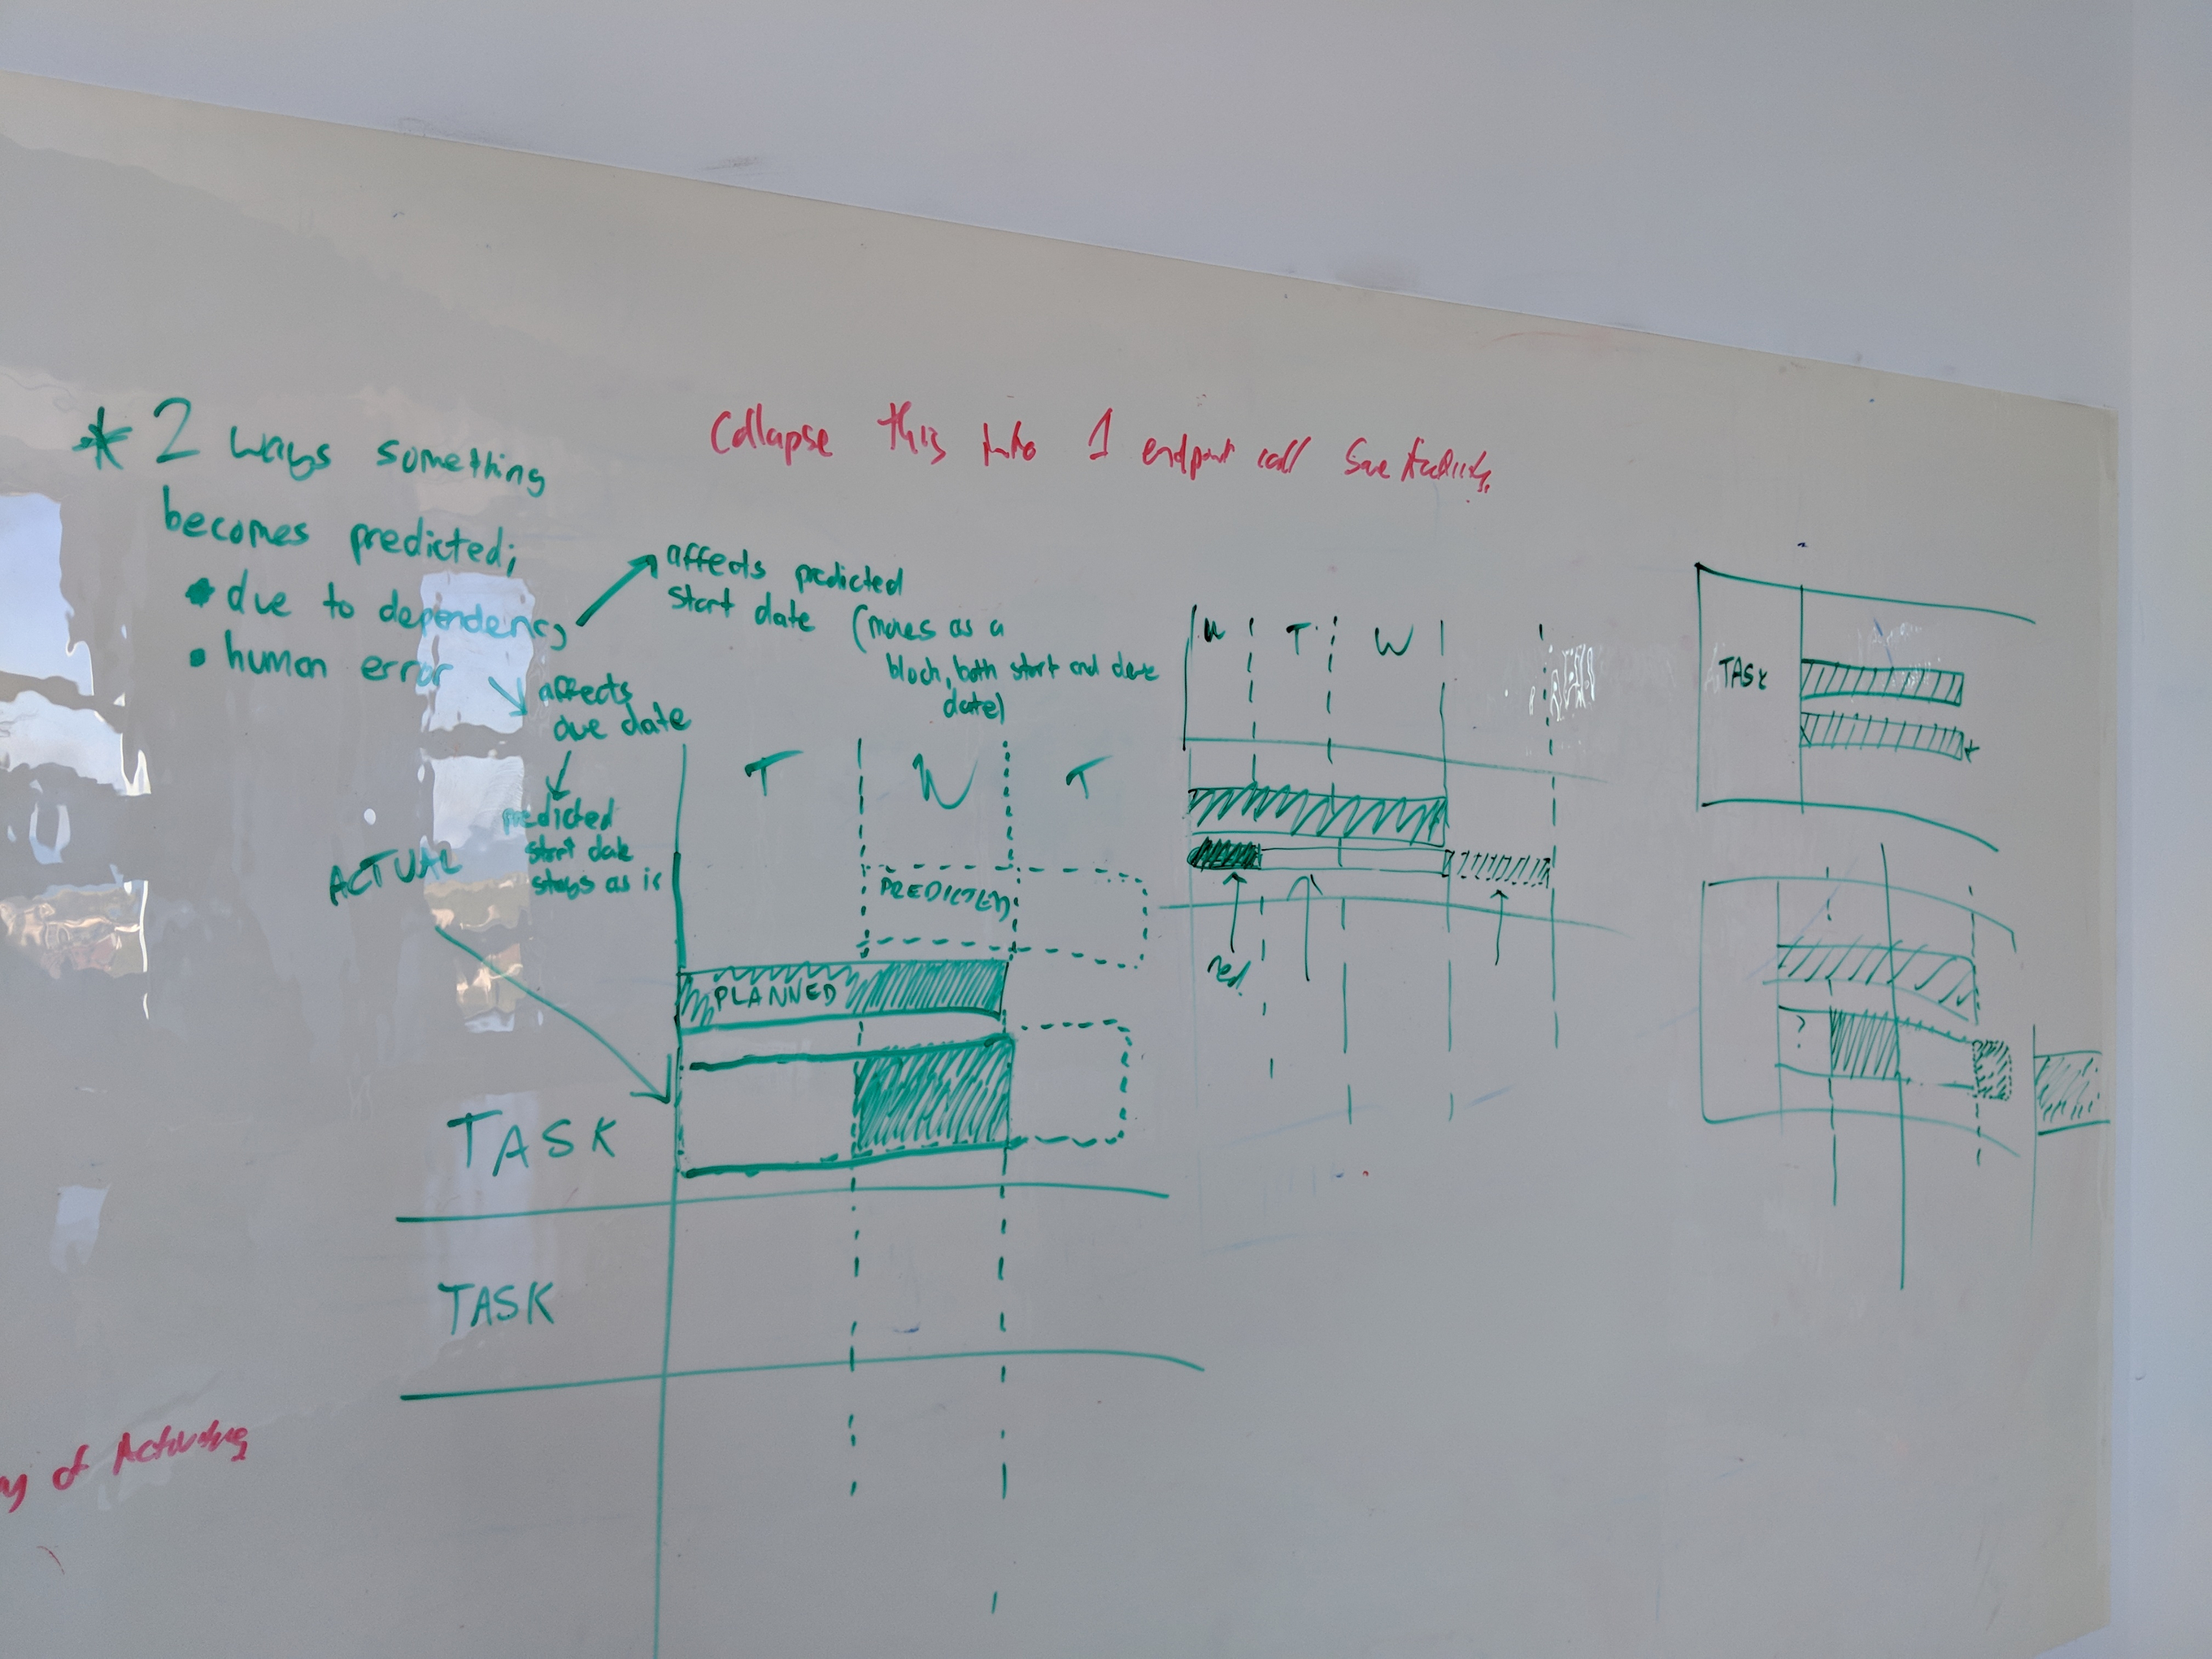 * 2 ways something
becomes predicted;
• due to dependency
• human error
affects predicted
start date (moves as a
block, both start and due
date)
affects
due date
predicted
start date
stays as is
Collapse this into 1 endpoint call
T W T
ACTUAL
PREDICTED
PLANNED
TASK
TASK
M T W
red
TASK
?
of